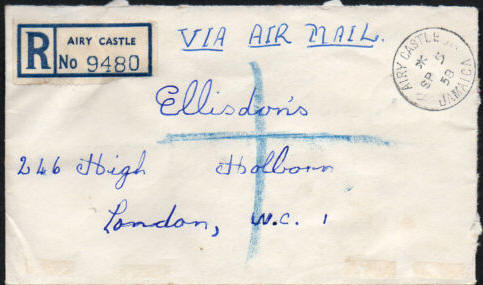 R AIRY CASTLE
No 9480
VIA AIR MAIL.
AIRY CASTLE
SP 5
58
JAMAICA
Ellisdon's
246 High Holborn
London, W.C. 1